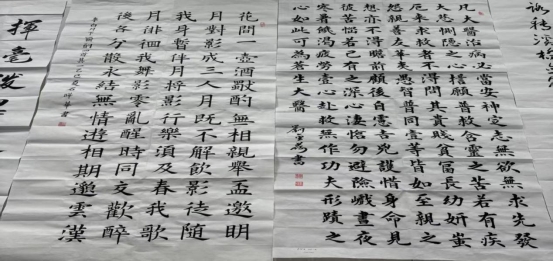 凡大醫治病必當安神定志無欲無求先發
大慈惻隱之心誓願普救含靈之苦若有疾
厄來求救者不得問其貴賤貧富長幼妍蚩
怨親善友華夷愚智普同壹等皆如至親之
想亦不得瞻前顧後自慮吉凶護惜身命見
彼苦惱若己有之深心悽愴勿避嶮巇晝夜
寒暑飢渴疲勞壹心赴救無作功夫形蹟之
心如此可為蒼生大醫
花間一壺酒獨酌無相親舉盃邀明
月對影成三人月既不解飲影徒隨
我身暫伴月將影行樂須及春我歌
月徘徊我舞影零亂醒時同交歡醉
後各分散永結無情遊相期邈雲漢
揮毫